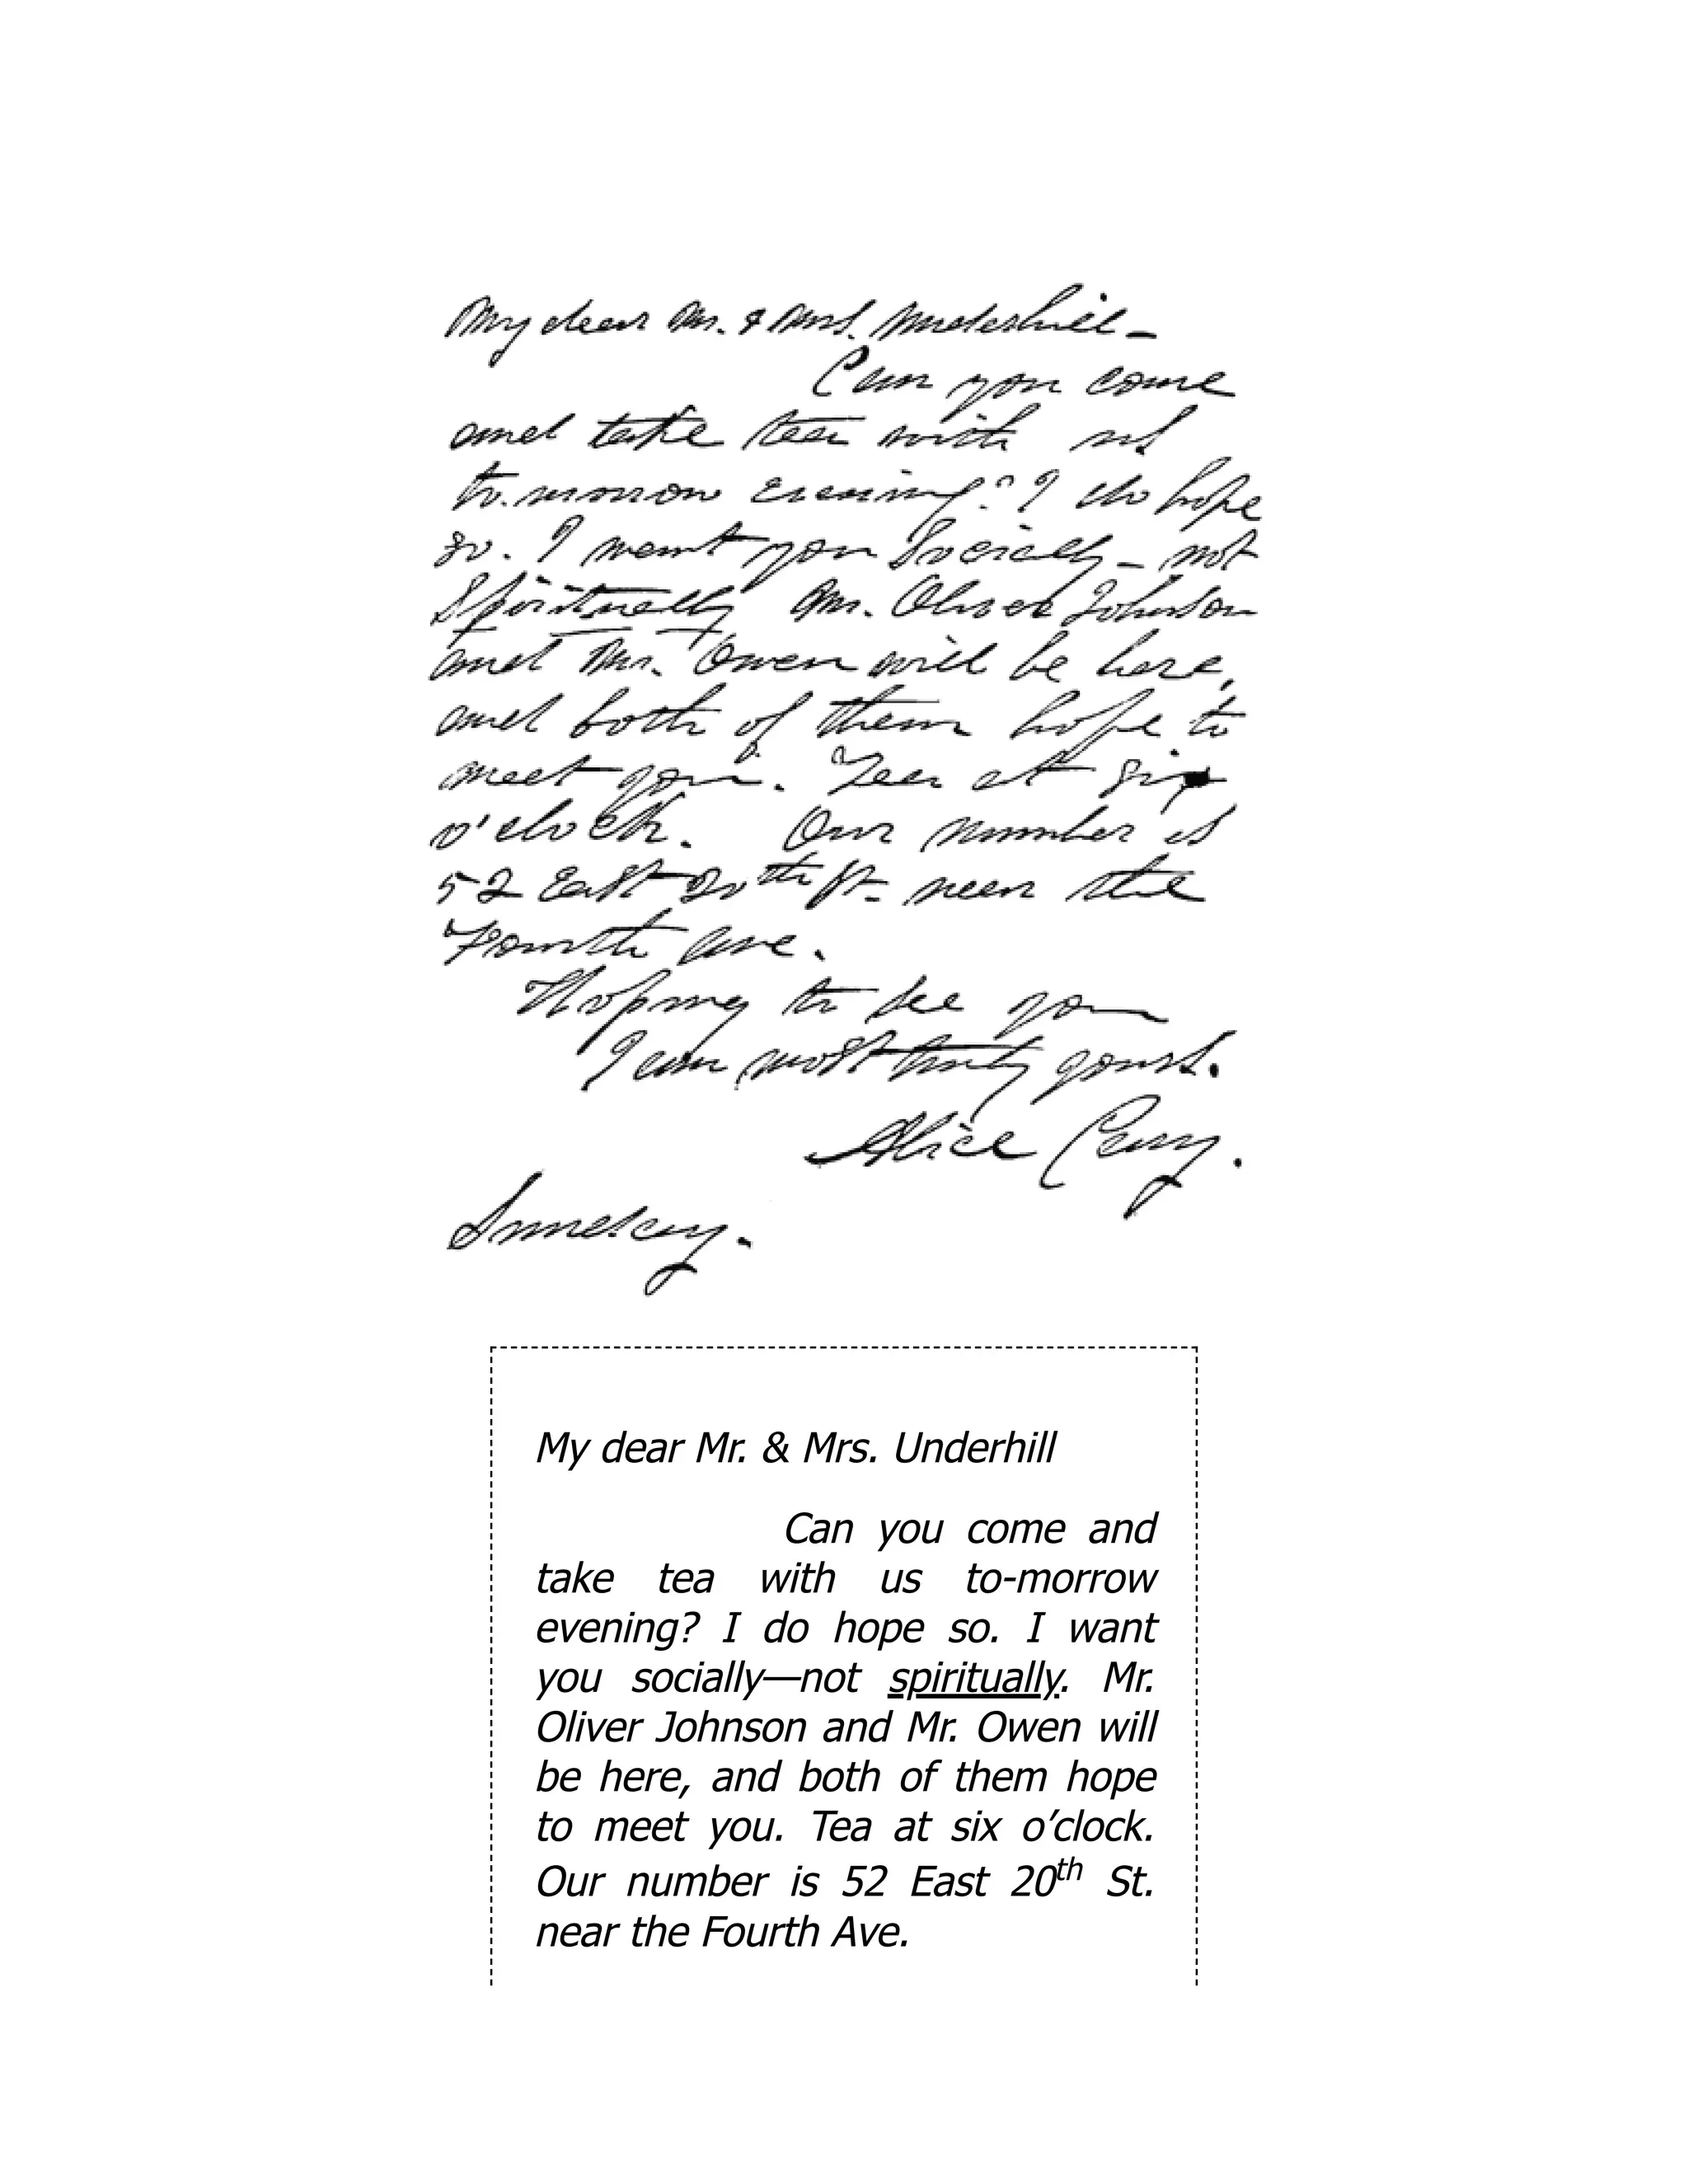 My dear Mr. & Mrs. Underhill—
Can you come
and take tea with us
to-morrow evening? I do hope
so. I want you Socially—not
Spiritually Mr. Oliver Johnson
and Mr. Owen will be here,
and both of them hope to
meet you. Tea at six
o'clock. Our number is
52 East 20th St. near the
Fourth Ave.
Hoping to see you
I am most truly yours.
Alice Cary.
Sunday.
My dear Mr. & Mrs. Underhill
Can you come and
take tea with us to-morrow
evening? I do hope so. I want
you socially—not spiritually. Mr.
Oliver Johnson and Mr. Owen will
be here, and both of them hope
to meet you. Tea at six o’clock.
Our number is 52 East 20th St.
near the Fourth Ave.